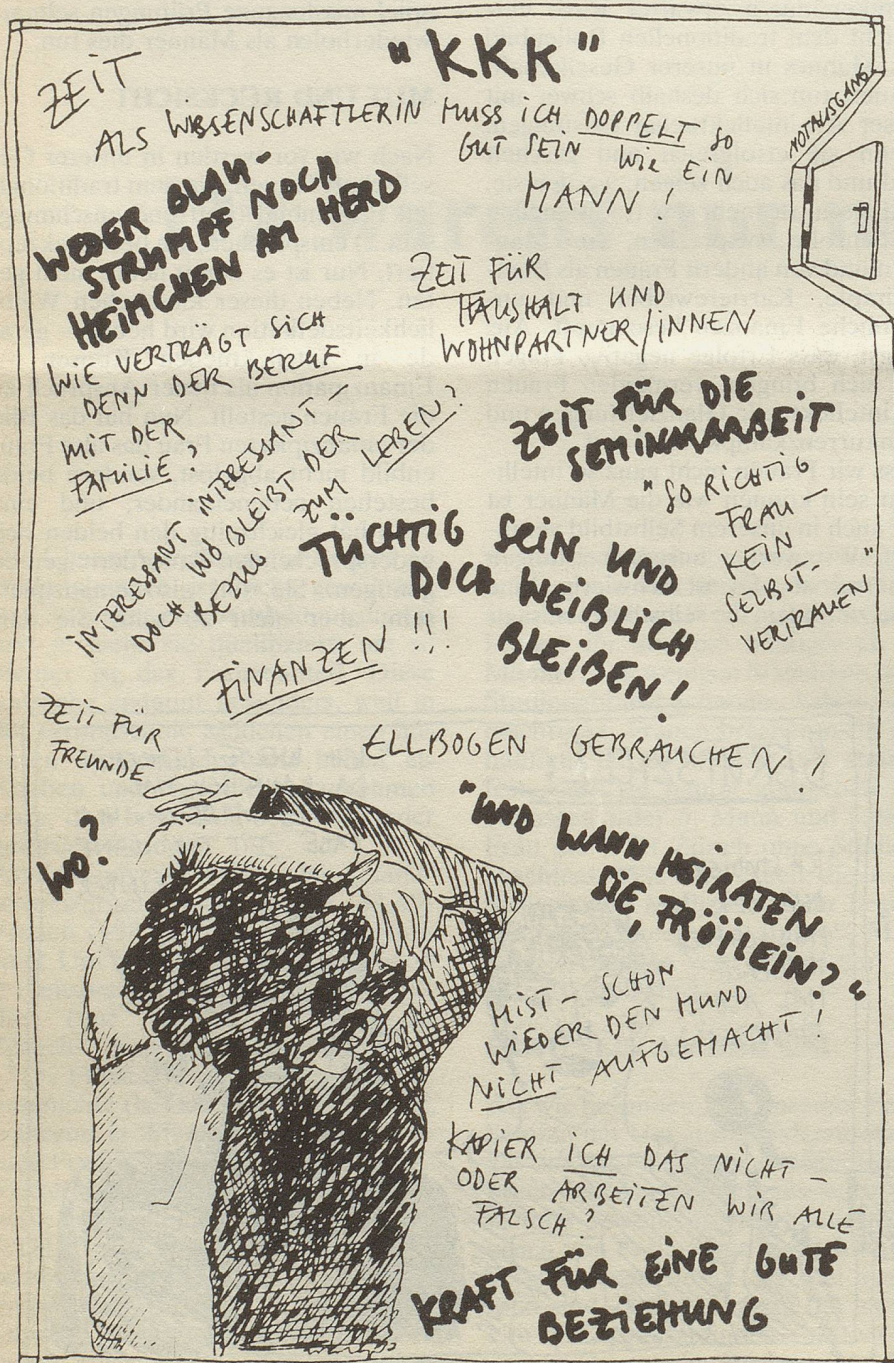 "KKK"
ZEIT
ALS WISSENSCHAFTLERIN MUSS ICH DOPPELT SO
GUT SEIN WIE EIN
MANN!
NOTAUSGANG
WEDER BLAU-
STRUMPF NOCH
HEIMCHEN AM HERD
ZEIT FÜR
HAUSHALT UND
WOHNPARTNER/INNEN
WIE VERTRÄGT SICH
DENN DER BERUF
MIT DER
FAMILIE?
ZEIT FÜR DIE
SEMINARARBEIT
INTERESSANT INTERESSANT
DOCH WO BLEIBT DER
BEZUG ZUM LEBEN?
"SO RICHTIG
FRAU –
KEIN
SELBST-
VERTRAUEN"
TÜCHTIG SEIN UND
DOCH WEIBLICH
BLEIBEN!
FINANZEN!!!
ZEIT FÜR
FREUNDE
ELLBOGEN GEBRAUCHEN!
WO?
"UND WANN HEIRATEN
SIE, FRÖILEIN?"
MIST – SCHON
WIEDER DEN MUND
NICHT AUFGEMACHT!
KAPIER ICH DAS NICHT –
ODER ARBEITEN WIR ALLE
FALSCH?
KRAFT FÜR EINE GUTE
BEZIEHUNG